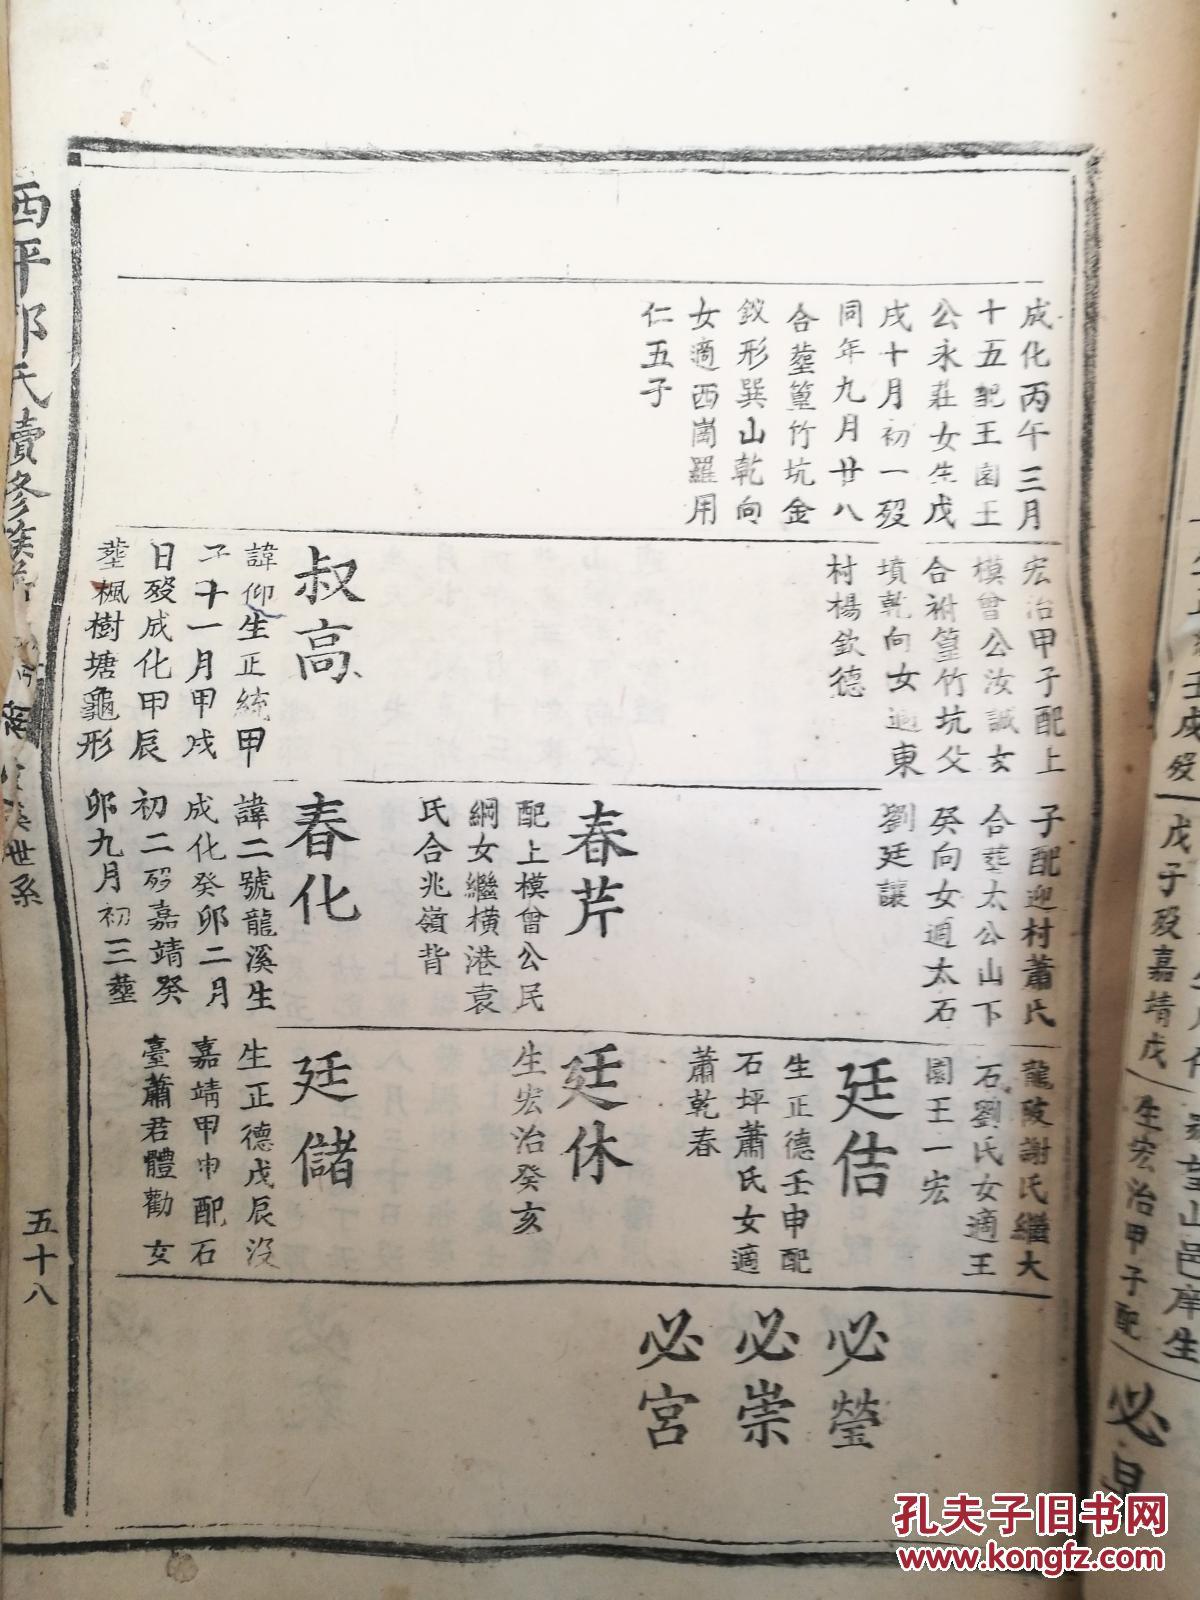 成化丙午三月
十五配王園王
公永莊女生戊
戌十月初一歿
同年九月廿八
合塟篁竹坑金
釵形巽山乾向
女適西崗羅用
仁五子
宏治甲子配上
模曾公汝誠女
合祔篁竹坑父
墳乾向女適東
村楊欽德
叔高
諱仰生正統甲
子十一月甲戌
日歿成化甲辰
塟楓樹塘龜形
子配迎村蕭氏
合塟太公山下
癸向女適太石
劉廷讓
春芹
配上模曾公民
綱女繼橫港袁
氏合兆嶺背
春化
諱二號龍溪生
成化癸卯二月
初二歿嘉靖癸
卯九月初三塟
龍陂謝氏繼大
石劉氏女適王
園王一宏
廷佶
生正德壬申配
石坪蕭氏女適
蕭乾春
廷休
生宏治癸亥
廷儲
生正德戊辰沒
嘉靖甲申配石
臺蕭君體勸女
必瑩
必崇
必宮
西平 氏續修族
世系
五十八
戊子歿嘉靖戊
生宏治甲子配
望山邑庠生
孔夫子旧书网
www.kongfz.com